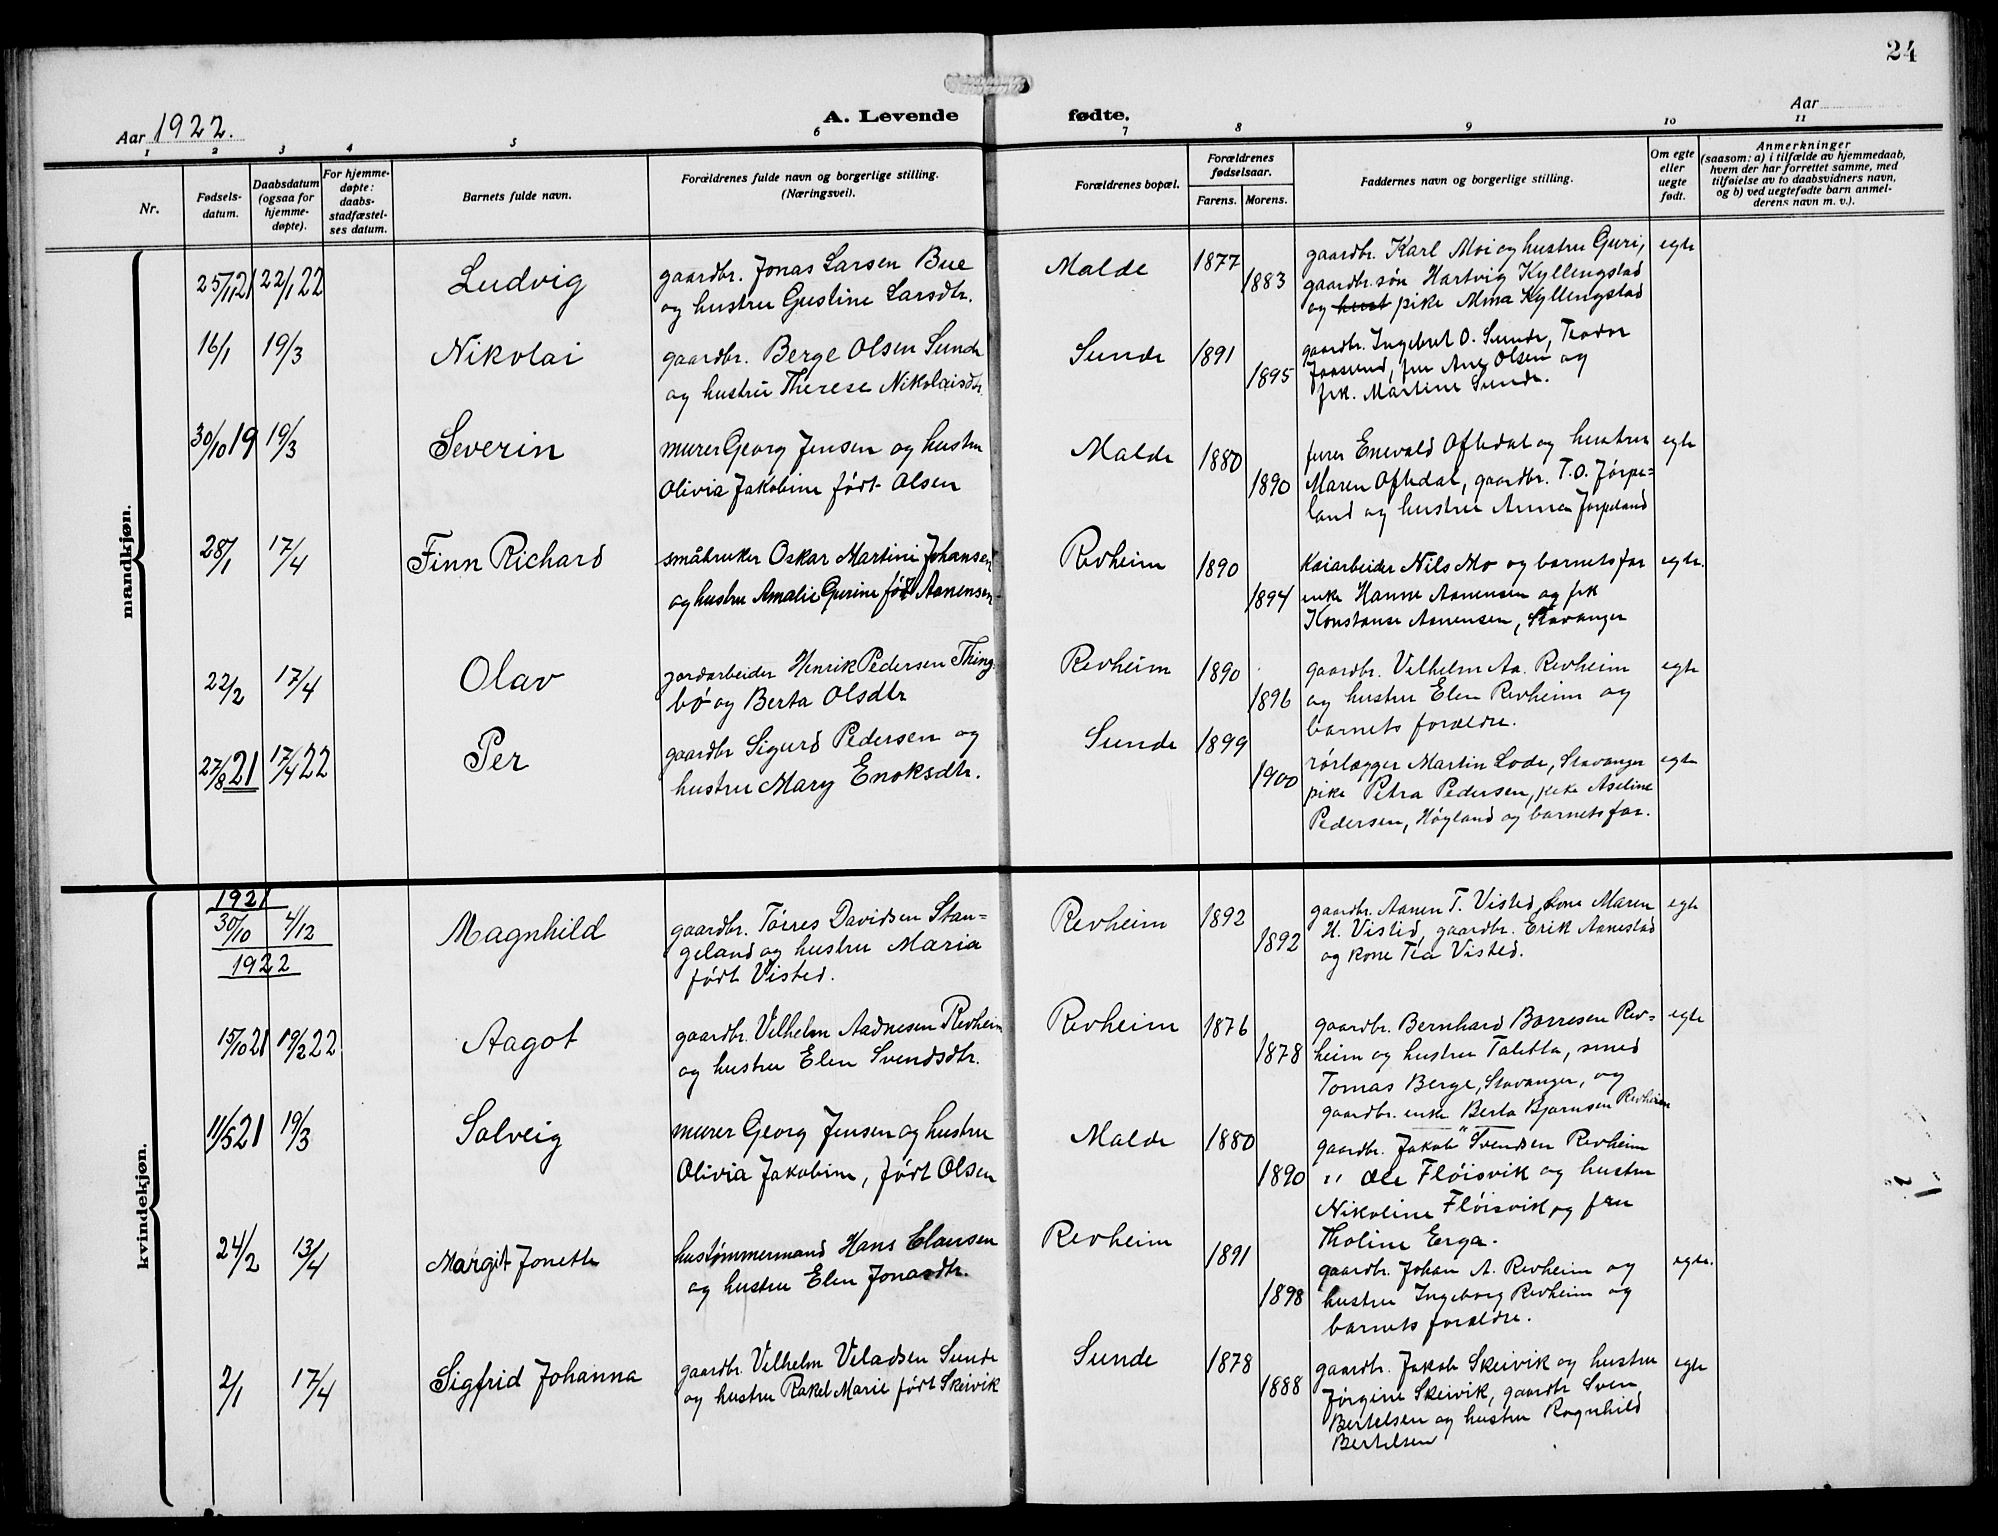 24
Aar 1922.
A. Levende fødte.
Aar
1 2 3 4 5 6 7 8 9 10 11
Nr.
Fødsels-
datum.
Daabsdatum
(ogsaa for
hjemme-
døpte).
For hjemme-
døpte:
daabs-
stadfæstel-
ses datum.
Barnets fulde navn.
Forældrenes fulde navn og borgerlige stilling.
(Næringsvei).
Forældrenes bopæl.
Forældrenes
fødselsaar.
Farens. Morens.
Faddernes navn og borgerlige stilling.
Om egte
eller
uegte
født.
Anmerkninger
(saasom: a) i tilfælde av hjemmedaab,
hvem der har forrettet samme, med
tilføielse av to daabsvidners navn,
og b) ved uegtefødte barn anmel-
derens navn m. v.).
mandkjøn.
25/11 21 22/1 22 Ludvig
gaardbr. Jonas Larsen Bue
og hustru Gustine Larsdtr.
Malde 1877 1883
gaardbr. Karl Moi og hustru Guri,
gaardbr. søn Hartvig Kyllengstad
og hust pike Alma Kyllengstad
egte
16/1 19/3 Nikolai
gaardbr. Berge Olsen Sunde
og hustru Therese Nikolaisdtr.
Sunde 1891 1895
gaardbr. Ingebret O. Sunde, Teodor
Jaasund, fru Ane Olsen og
frk. Martine Sunde.
30/10 19 19/3 Severin
murer Georg Jensen og hustru
Olivia Jakobine født Olsen
Malde 1880 1890
furer Enevald Oftedal og hustru
Maren Oftedal, gaardbr. T. O. Jørpe-
land og hustru Anna Jørpeland
egte
28/1 17/4 Finn Richard
småbruker Oskar Martini Johansen
og hustru Amalie Gurine født Aanensen
Revheim 1890 1894
Kaiarbeider Nils Mo og barnets far
enke Hanne Aanensen og frk
Konstanse Aanensen, Stavanger
egte.
22/2 17/4 Olav
jordarbeider Henrik Pedersen Thing-
bø og Berta Olsdtr
Revheim 1890 1896
gaardbr. Vilhelm Aa. Revheim
og hustru Elen Revheim og
barnets forældre.
egte
27/8 21 17/4 22 Per
gaardbr Sigurd Pedersen og
hustru Mary Enoksdtr.
Sunde 1899 1900
rørlægger Martin Lode, Stavanger
pike Petra Pedersen, pike Aseline
Pedersen, Høyland og barnets far.
egte
kvindekjøn.
1921
30/10 4/12 Magnhild
1922
gaardbr. Tørres Davidsen Stan-
geland og hustru Maria
født Visted.
Revheim 1892 1892
gaardbr. Aanen T. Visted, kone Maren
H. Visted, gaardbr. Erik Aanestad
og kone Tea Visted.
egte
15/10 21 19/2 22 Aagot
gaardbr. Vilhelm Aadnesen Revheim
og hustru Elen Svendsdtr.
Revheim 1876 1878
gaardbr. Bernhard Borresen Rev-
heim og hustru Taletta, smed
Tomas Berge, Stavanger, og
gaardbr. enke Berta Bjørnsen Revheim
egte
11/5 21 19/3 Solveig
murer Georg Jensen og hustru
Olivia Jakobine, født Olsen
Malde 1880 1890
gaardbr. Jakob Svendsen Revheim
" Ole Fløisvik og hustru
Nikoline Fløisvik og fru
Tholine Erga.
24/2 13/4 Margit Jonette
hustømmermand Hans Clausen
og hustru Elen Jonasdtr.
Revheim 1891 1898
gaardbr. Johan A. Revheim og
hustru Ingeborg Revheim og
barnets forældre.
egte.
2/1 17/4 Sigfrid Johanna
gaardbr. Vilhelm Veladsen Sunde
og hustru Rakel Marie født Skeivik
Sunde 1878 1888
gaardbr. Jakob Skeivik og hustru
Jørgine Skeivik, gaardbr Sven
Bertelsen og hustru Ragnhild
Bertelsen
egte